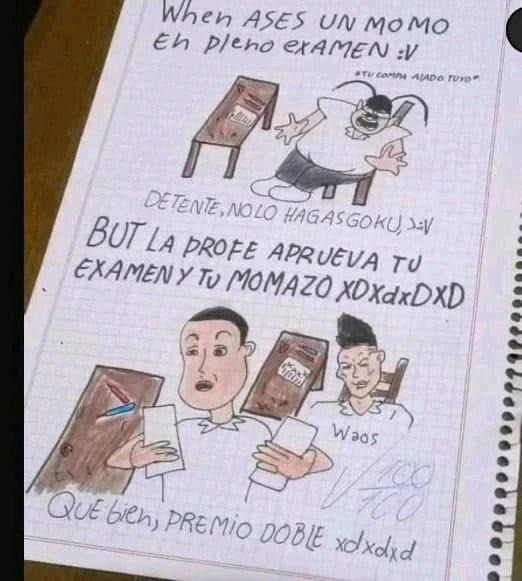 When ASES UN MOMO
En pleno exAMEN :V
*TU COMPA ALADO TUYO*
DETENTE, NO LO HAGAS GOKU, >:V
BUT LA PROFE APRUEVA TU
EXAMEN Y TU MOMAZO XDXdxDXD
Waos
100/100
QUE bien, PREMIO DOBLE xdxdxd